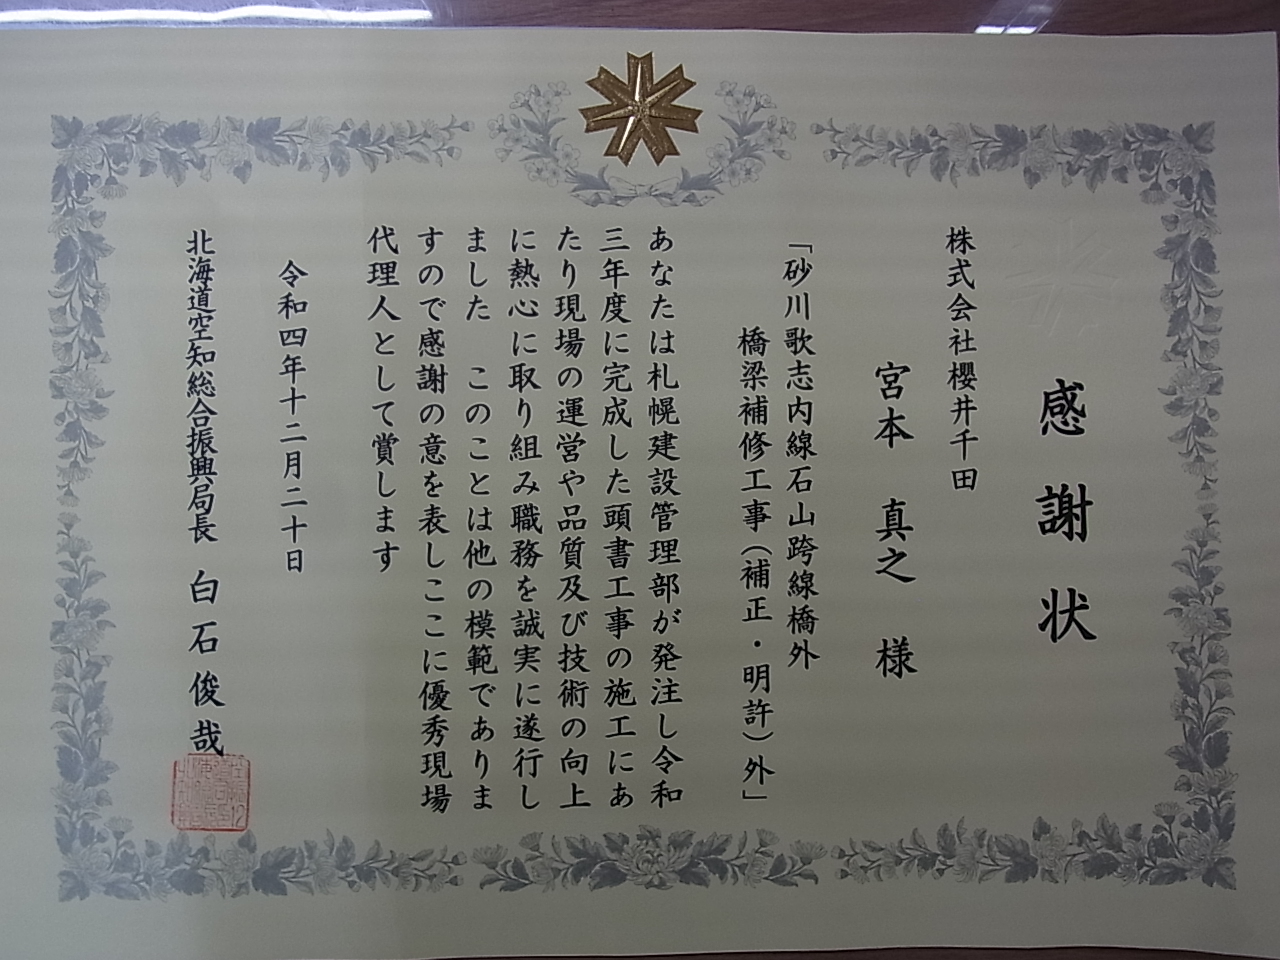 感謝状
株式会社櫻井千田
宮本 真之 様
「砂川歌志内線石山跨線橋外
橋梁補修工事(補正・明許)外」
あなたは札幌建設管理部が発注し令和
三年度に完成した頭書工事の施工にあ
たり現場の運営や品質及び技術の向上
に熱心に取り組み職務を誠実に遂行し
ました このことは他の模範でありま
すので感謝の意を表しここに優秀現場
代理人として賞します
令和四年十二月二十日
北海道空知総合振興局長 白石俊哉